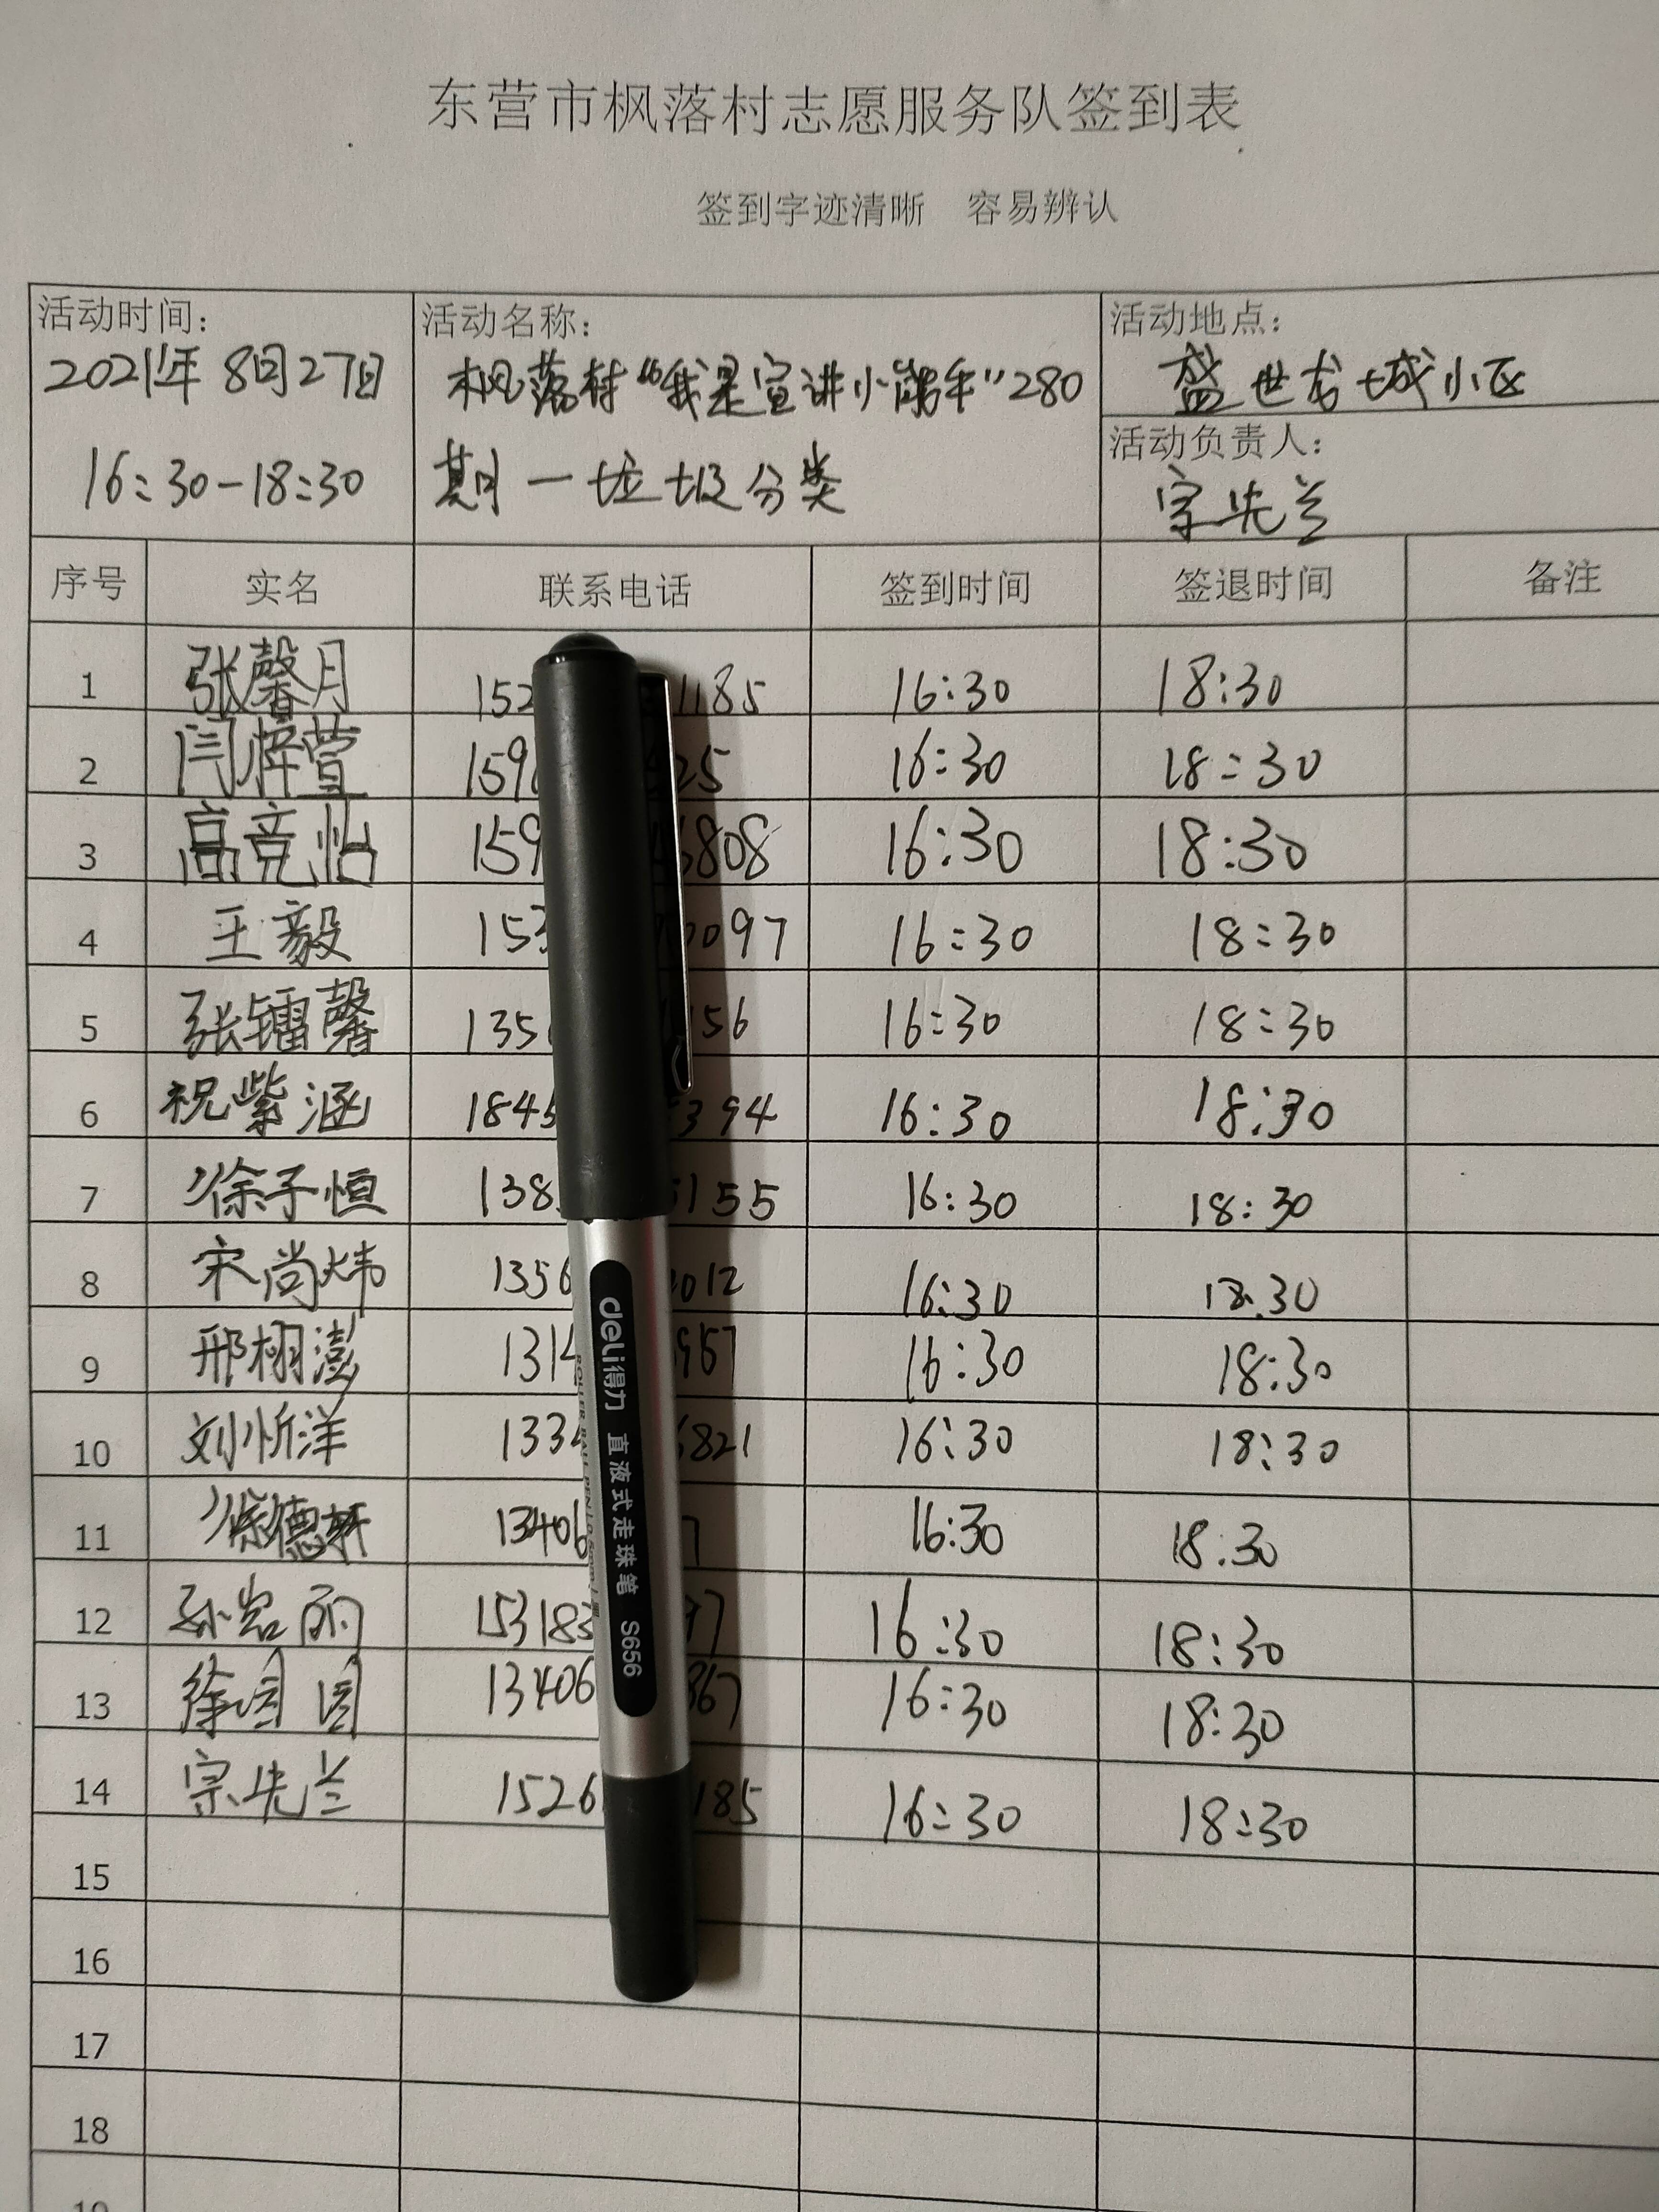 东营市枫落村志愿服务队签到表
签到字迹清晰 容易辨认
活动时间:
2021年 8月27日
16:30-18:30
活动名称:
枫落村"我是宣讲小能手"280
期一垃圾分类
活动地点:
盛世龙城小区
活动负责人:
宗先兰
序号 实名 联系电话 签到时间 签退时间 备注
1 张馨月 152 1185 16:30 18:30
2 闫梓萱 159 25 16:30 18:30
3 高竞怡 159 808 16:30 18:30
4 王毅 153 0097 16:30 18:30
5 张镭馨 135 156 16:30 18:30
6 祝紫涵 1845 394 16:30 18:30
7 徐子恒 138 155 16:30 18:30
8 宋尚炜 1356 012 16:30 18:30
9 邢栩澎 1314 957 16:30 18:30
10 刘忻洋 1334 6821 16:30 18:30
11 徐德轩 13406 7 16:30 18:30
12 孙岩丽 153183 77 16:30 18:30
13 徐 13406 867 16:30 18:30
14 宗先兰 1526 185 16:30 18:30
15
16
17
18
deli得力 直液式走珠笔 S656